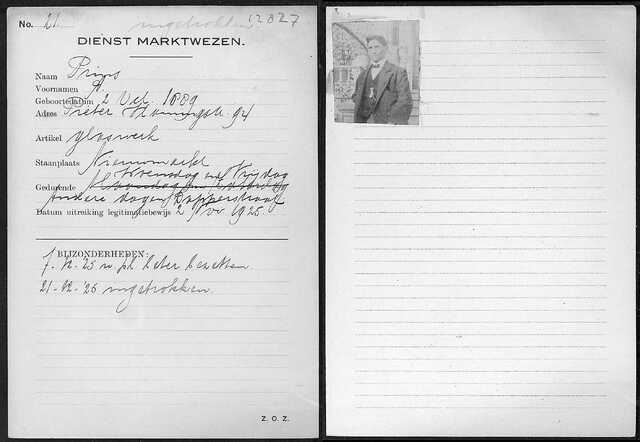 No. 21 ingetrokken 12827
DIENST MARKTWEZEN.
Naam Prijs
Voornamen A.
Geboortedatum 2 Oct. 1889
Adres Pieter 94
Artikel glaswerk
Staanplaats Nieuwmarkt
Woensdag en Vrijdag
Gedurende Maandag en Zaterdag
Andere dagen Dapperstraat
Datum uitreiking legitimatiebewijs 2 Nov 1925.
BIJZONDERHEDEN:
7-12-25 w. pl. beter bezetten.
21-12-'25 ingetrokken.
Z. O. Z.